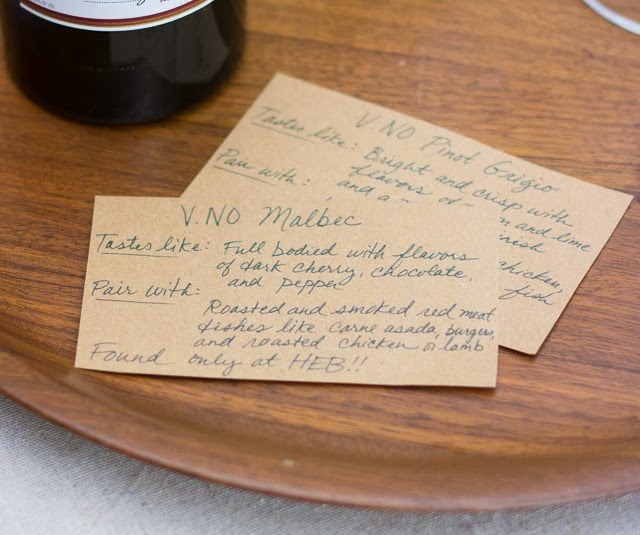 V.NO Pinot Grigio
Tastes like: Bright and crisp with
flavors of - and lime
and a -
Pair with: chicken,
fish
V.NO Malbec
Tastes like: Full bodied with flavors
of dark cherry, chocolate,
and pepper
Pair with:
Roasted and smoked red meat
dishes like carne asada, burgers,
and roasted chicken or lamb
Found only at HEB!!